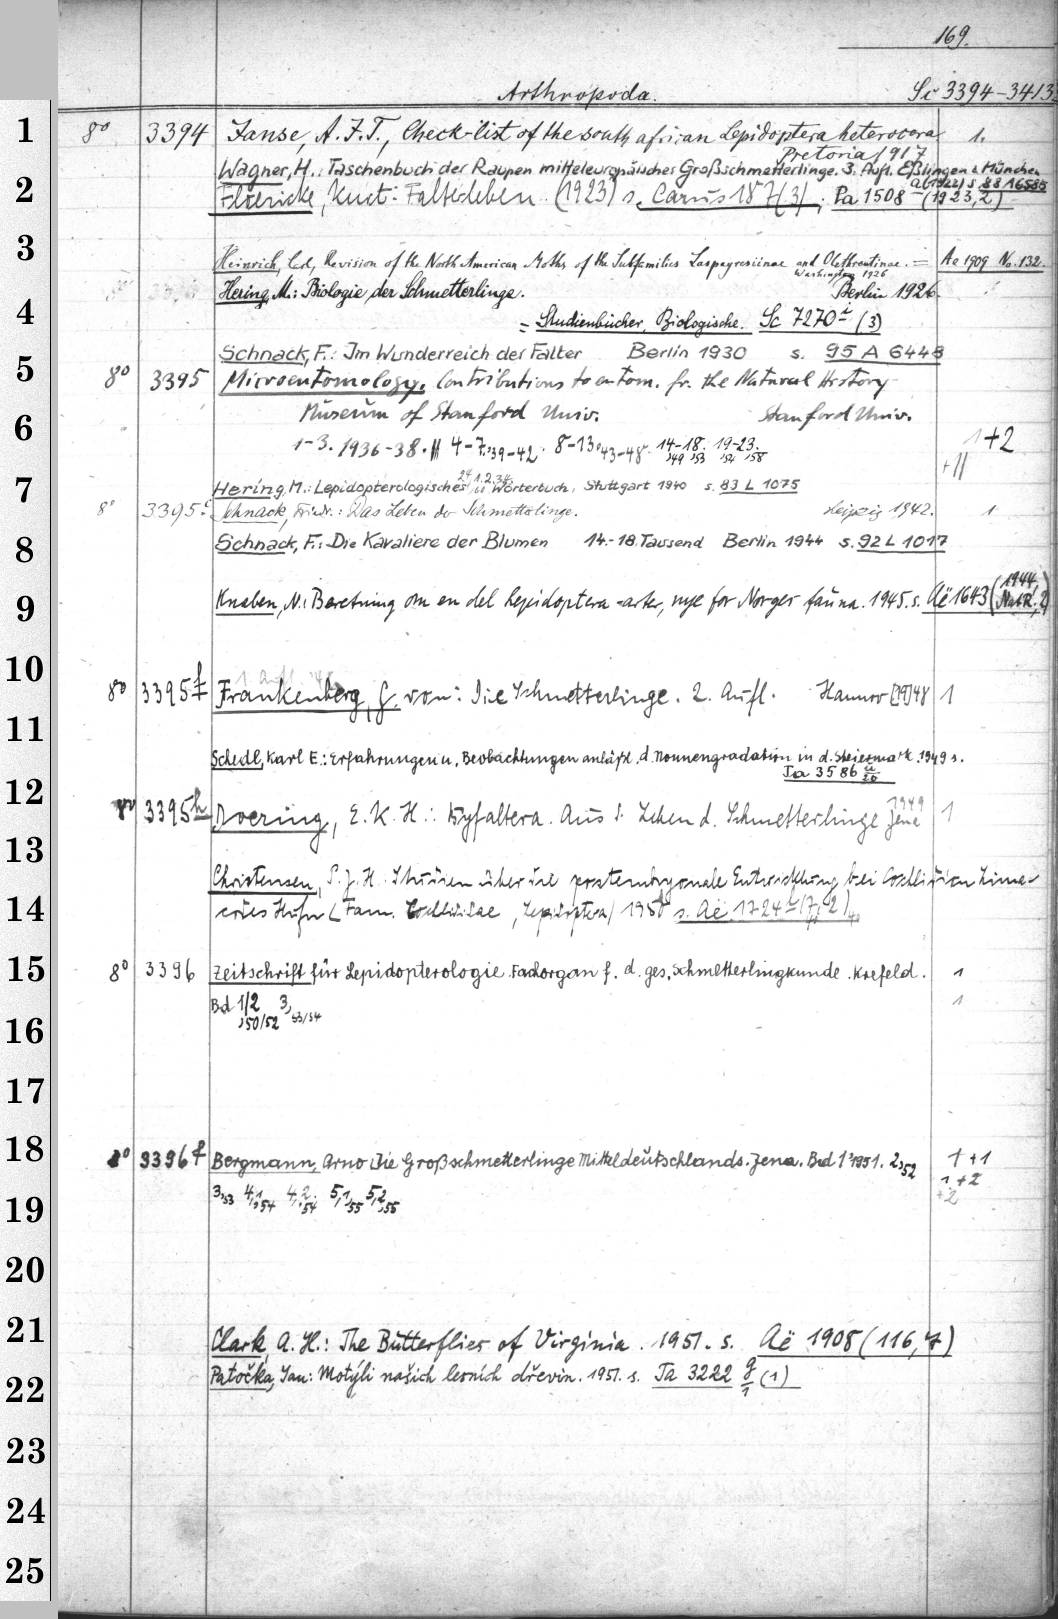 169.
Arthropoda. Sc 3394-3413
1 8° 3394 Janse, A.J.T., Check-list of the south african Lepidoptera heterocera 1.
Pretoria 1917
Wagner, H.: Taschenbuch der Raupen mitteleuropäischer Großschmetterlinge. 3. Aufl. Eßlingen & München
a(1922) s. 88 A 6585
2 Floericke, Kurt: Falterleben. (1923) s. Carus 187(3), Pa 1508 (1923,2)
3 Heinrich, Carl, Revision of the North American Moths of the Subfamilies Laspeyresiinae and Olethreutinae. = Ae 1909 No. 132.
Washington 1926
Hering, M.: Biologie der Schmetterlinge. Berlin 1926.
4 = Studienbücher, Biologische. Sc 7270 (3)
Schnack, F.: Im Wunderreich der Falter Berlin 1930 s. 95 A 6448
5 8° 3395 Microentomology. Contributions to entom. fr. the Natural History
6 Museum of Stanford Univ. Stanford Univ.
1-3. 1936-38. 4-7.,39-42. 8-13,43-48. 14-18. 19-23. 1+2
,49 ,53 ,54 ,58 +11
24 1.2.34
7 Hering, M.: Lepidopterologisches Wörterbuch, Stuttgart 1940 s. 83 L 1075
8° 3395 Schnack, Friedr.: Das Leben der Schmetterlinge. Leipzig 1942. 1
8 Schnack, F.: Die Kavaliere der Blumen 14.-18. Tausend Berlin 1944 s. 92 L 1017
9 Knaben, N.: Beretning om en del Lepidoptera-arter, nye for Norges fauna. 1945. s. Aë 1643 (1944, NatR. 2)
10 1 Aufl. 48
8° 3395 f Frankenberg, G. von: Die Schmetterlinge. 2. Aufl. Hannov [19]48 1
11 Schedl, Karl E.: Erfahrungen u. Beobachtungen anläßl. d. Nonnengradation in d. Steiermark. 1949 s.
Ja 3586 u/20
12 8° 3395 h Doering, E. K. H.: Kyfaltera. Aus d. Leben d. Schmetterlinge 1949 Jena 1
13
Christensen, P. J. H. Studien über die postembryonale Entwicklung bei Cochlidion Lima-
14 codes Hufn (Fam. Cochlididae, Lepidoptera) 1950 s. Aë 1724 (7, 2)
15 8° 3396 Zeitschrift für Lepidopterologie. Fachorgan f. d. ges. Schmetterlingkunde. Krefeld. 1
Bd 1/2 3, 1
,50/52 53/54
16
17
18 8° 3396 f Bergmann, Arno: Die Großschmetterlinge Mitteldeutschlands. Jena. Bd 1 1951. 2,52 1+1
1+2
19 3,53 4,1,54 4,2,54 5,1,55 5,2,55 +2
20
21 Clark, A. H.: The Butterflies of Virginia. 1951. s. Aë 1908 (116, 7)
22 Patočka, Jan: Motýli našich lesních dřevin. 1951. s. Ja 3222 g/1 (1)
23
24
25